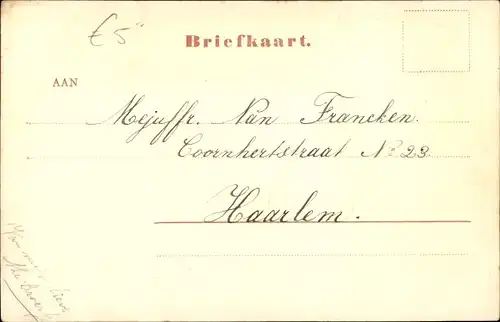 £5"
Briefkaart.
AAN
Mejuffr. Nan Francken.
Coornhertstraat No 23.
Haarlem.